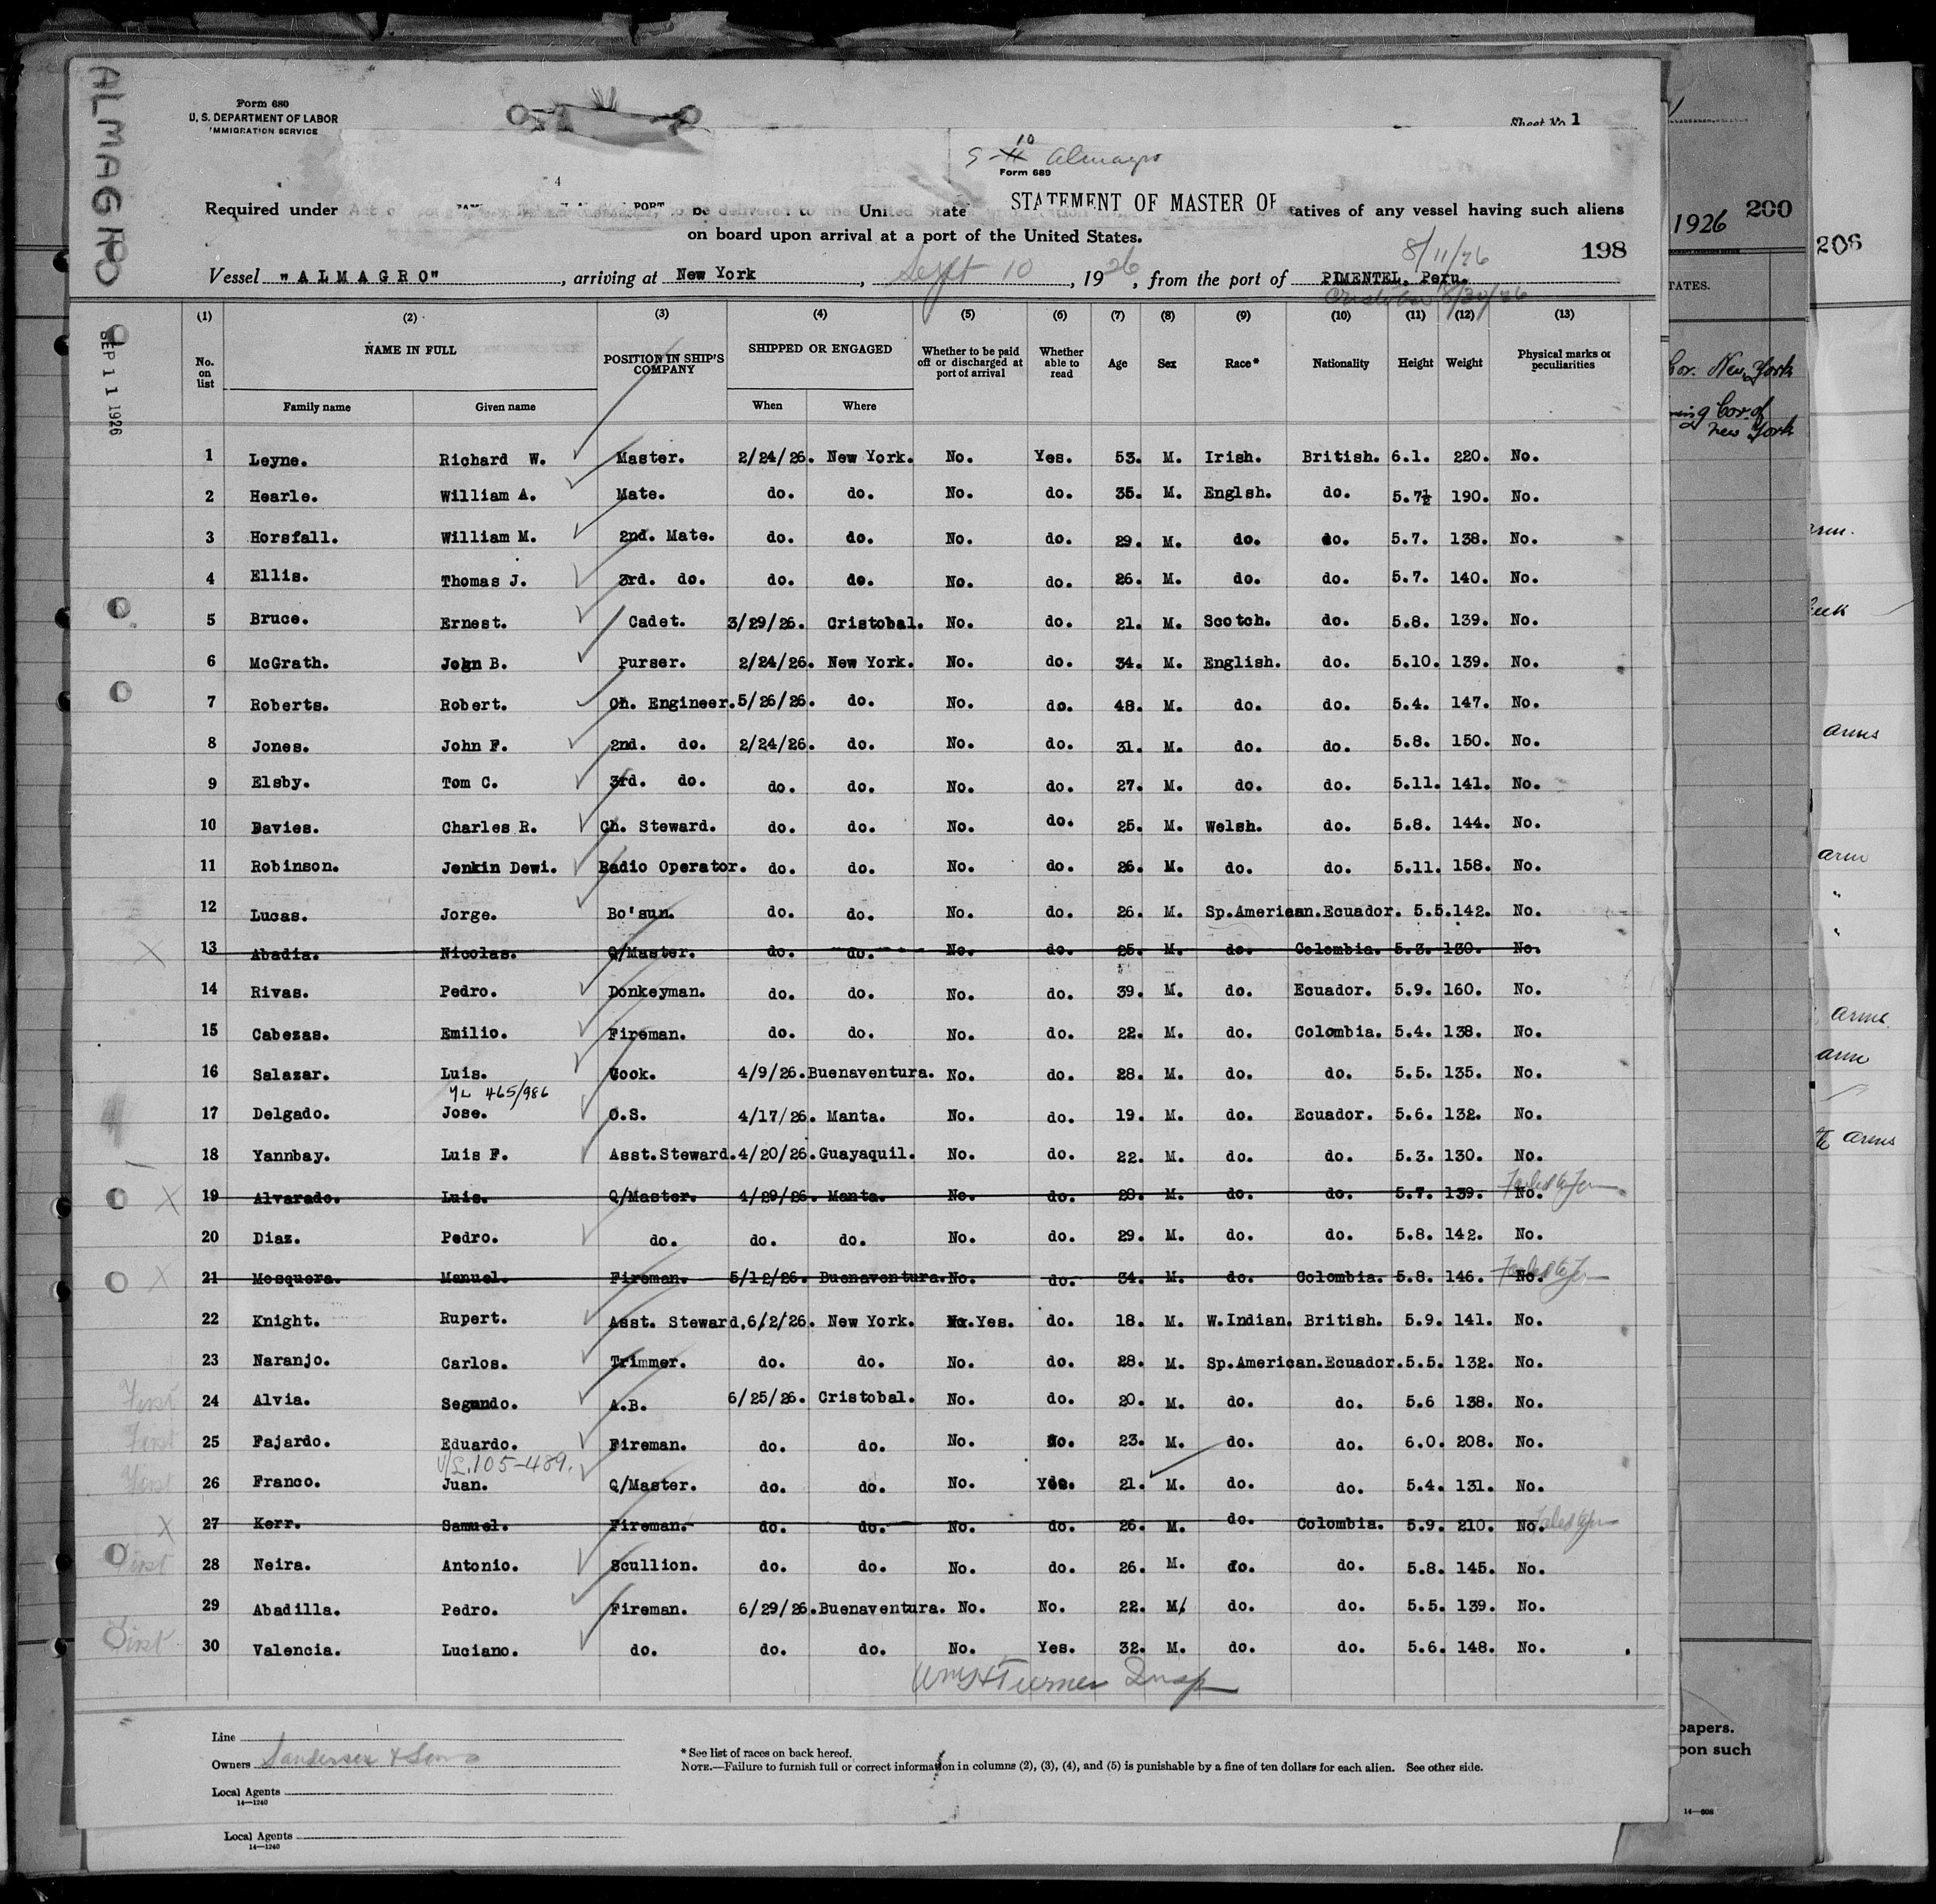 ALMAGRO
Form 680
U. S. DEPARTMENT OF LABOR
IMMIGRATION SERVICE
Sheet No. 1
Almagro
Form 689
STATEMENT OF MASTER OF
Required under Act of be delivered to the United State tatives of any vessel having such aliens
on board upon arrival at a port of the United States.
198
8/11/26
Vessel "ALMAGRO", arriving at New York, Sept 10, 1926, from the port of PIMENTEL, Peru.
Cristobal 8/30/26
SEP 11 1926
(1) (2) (3) (4) (5) (6) (7) (8) (9) (10) (11) (12) (13)
No. on list NAME IN FULL POSITION IN SHIP'S COMPANY SHIPPED OR ENGAGED Whether to be paid off or discharged at port of arrival Whether able to read Age Sex Race* Nationality Height Weight Physical marks or peculiarities
Family name Given name When Where
1 Leyne. Richard W. Master. 2/24/26. New York. No. Yes. 53. M. Irish. British. 6.1. 220. No.
2 Hearle. William A. Mate. do. do. No. do. 35. M. Englsh. do. 5.7½ 190. No.
3 Horsfall. William M. 2nd. Mate. do. do. No. do. 29. M. do. do. 5.7. 138. No.
4 Ellis. Thomas J. 3rd. do. do. do. No. do. 26. M. do. do. 5.7. 140. No.
5 Bruce. Ernest. Cadet. 3/29/26. Cristobal. No. do. 21. M. Scotch. do. 5.8. 139. No.
6 McGrath. John B. Purser. 2/24/26. New York. No. do. 34. M. English. do. 5.10. 139. No.
7 Roberts. Robert. Ch. Engineer. 5/26/26. do. No. do. 48. M. do. do. 5.4. 147. No.
8 Jones. John F. 2nd. do. 2/24/26. do. No. do. 31. M. do. do. 5.8. 150. No.
9 Elsby. Tom C. 3rd. do. do. do. No. do. 27. M. do. do. 5.11. 141. No.
10 Davies. Charles R. Ch. Steward. do. do. No. do. 25. M. Welsh. do. 5.8. 144. No.
11 Robinson. Jenkin Dewi. Radio Operator. do. do. No. do. 26. M. do. do. 5.11. 158. No.
12 Lucas. Jorge. Bo'sun. do. do. No. do. 26. M. Sp.American. Ecuador. 5.5. 142. No.
13 Abadia. Nicolas. Q/Master. do. do. No. do. 25. M. do. Colombia. 5.3. 130. No.
14 Rivas. Pedro. Donkeyman. do. do. No. do. 39. M. do. Ecuador. 5.9. 160. No.
15 Cabezas. Emilio. Fireman. do. do. No. do. 22. M. do. Colombia. 5.4. 138. No.
16 Salazar. Luis. Cook. 4/9/26. Buenaventura. No. do. 28. M. do. do. 5.5. 135. No.
465/986
17 Delgado. Jose. O.S. 4/17/26. Manta. No. do. 19. M. do. Ecuador. 5.6. 132. No.
18 Yannbay. Luis F. Asst.Steward. 4/20/26. Guayaquil. No. do. 22. M. do. do. 5.3. 130. No.
19 Alvarado. Luis. Q/Master. 4/29/26. Manta. No. do. 28. M. do. do. 5.7. 139. No.
20 Diaz. Pedro. do. do. do. No. do. 29. M. do. do. 5.8. 142. No.
21 Mosquera. Manuel. Fireman. 5/12/26. Buenaventura. No. do. 34. M. do. Colombia. 5.8. 146. No.
22 Knight. Rupert. Asst. Steward. 6/2/26. New York. Yes. do. 18. M. W.Indian. British. 5.9. 141. No.
23 Naranjo. Carlos. Trimmer. do. do. No. do. 28. M. Sp.American. Ecuador. 5.5. 132. No.
First 24 Alvia. Segundo. A.B. 6/25/26. Cristobal. No. do. 20. M. do. do. 5.6 138. No.
First 25 Fajardo. Eduardo. Fireman. do. do. No. No. 23. M. do. do. 6.0. 208. No.
105-489.
First 26 Franco. Juan. Q/Master. do. do. No. Yes. 21. M. do. do. 5.4. 131. No.
27 Kerr. Samuel. Fireman. do. do. No. do. 26. M. do. Colombia. 5.9. 210. No.
First 28 Neira. Antonio. Scullion. do. do. No. do. 26. M. do. do. 5.8. 145. No.
29 Abadilla. Pedro. Fireman. 6/29/26. Buenaventura. No. No. 22. M/ do. do. 5.5. 139. No.
First 30 Valencia. Luciano. do. do. do. No. Yes. 32. M. do. do. 5.6. 148. No.
Wm H Turner Insp
Line
Owners Sanderson & Son
Local Agents
14—1240
* See list of races on back hereof.
NOTE.—Failure to furnish full or correct information in columns (2), (3), (4), and (5) is punishable by a fine of ten dollars for each alien. See other side.
Local Agents
14—1240
1926 200
TATES.
Cor. New York
ning Cor. of
New York
papers.
pon such
14—608
206
arm.
arms
arm
"
"
arms
arm
arms